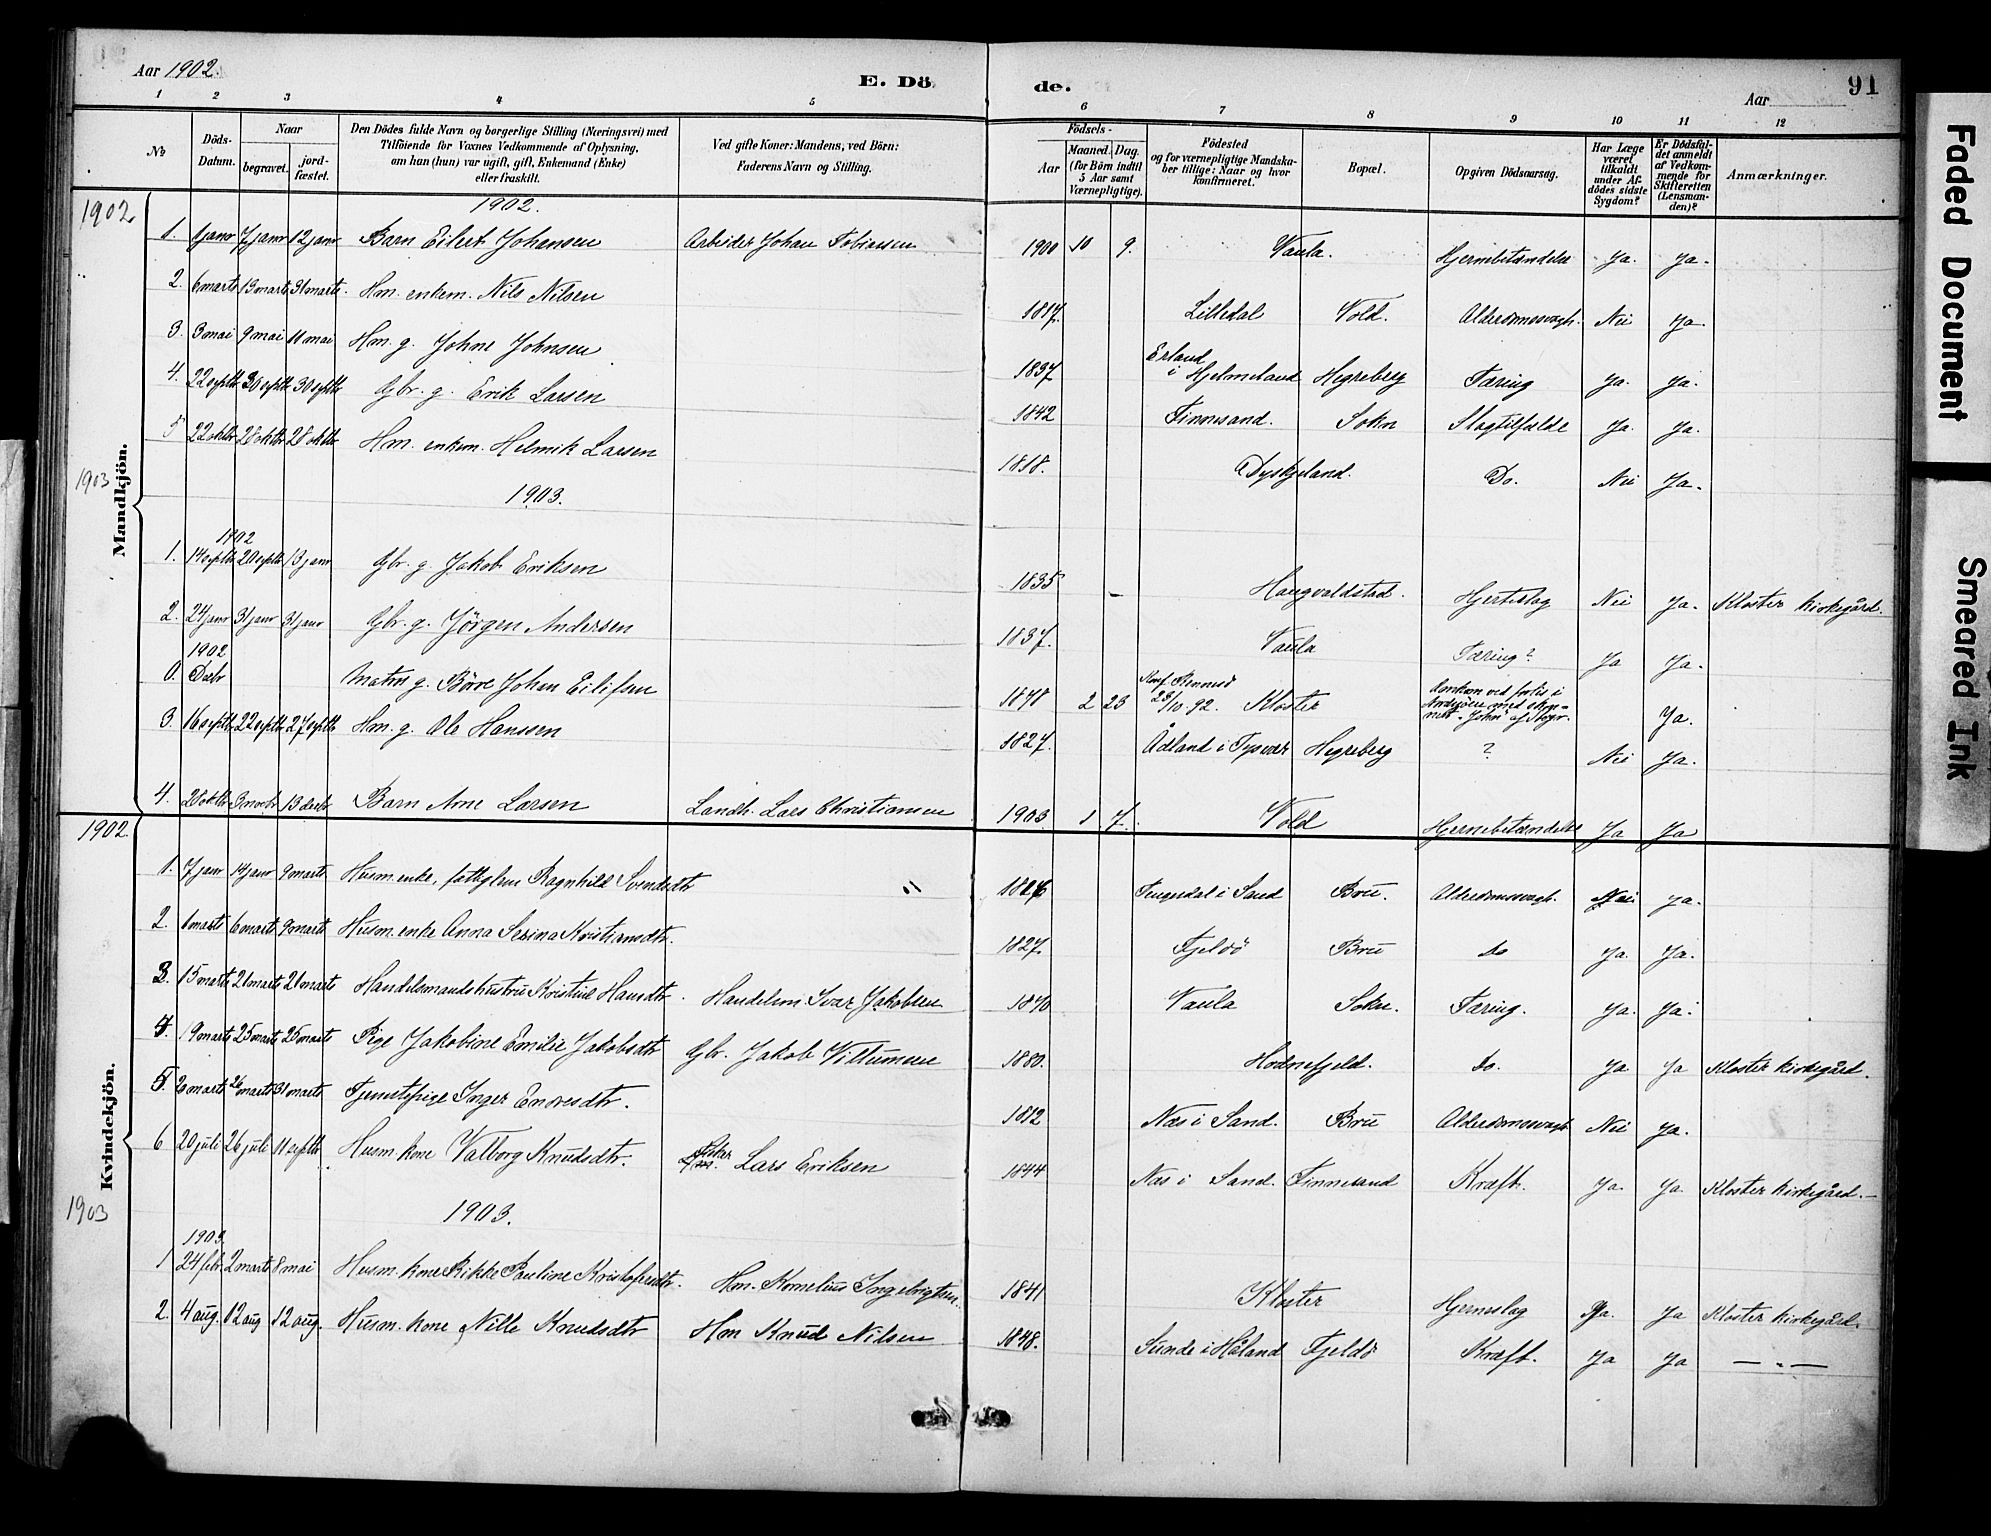 Aar 1902.
E. Dö
de.
Aar
91
1 2 3 4 5 6 7 8 9 10 11 12
№
Döds-Datum.
Naar
begravet.
jord-fæstet.
Den Dödes fulde Navn og borgerlige Stilling (Næringsvei) med
Tilföiende for Voxnes Vedkommende af Oplysning,
om han (hun) var ugift, gift, Enkemand (Enke)
eller fraskilt.
Ved gifte Koner: Mandens, ved Börn:
Faderens Navn og Stilling.
Födsels-
Aar
Maaned. Dag.
(for Börn indtil
5 Aar samt
Værnepligtige).
Födested
og for værnepligtige Mandska-
ber tillige: Naar og hvor
konfirmeret.
Bopæl.
Opgiven Dödsaarsag.
Har Læge
været
tilkaldt
under Af-
dödes sidste
Sygdom?
Er Dödsfal-
det anmeldt
af Vedkom-
mende for
Skifteretten
(Lensman-
den)?
Anmærkninger.
Mandkjön.
1902
1902.
1. 1 janr 7 janr 12 janr Barn Eilert Johansen Arbeider Johan Tobiassen 1900 10 9. Vaula. Hjernebetændelse Ja. Ja.
2. 6 marts 13 marts 31 marts. Hm. enkem. Nils Nilsen 1817. Lilledal Vold. Alderdomssvagh. Nei Ja.
3. 3 mai 9 mai 11 mai Hm. g. Johne Johnsen 1837 Erland i Hjelmeland Hegreberg Tæring Ja. Ja.
4. 22 septbr 30 septbr 30 septbr Gbr. g. Erik Larsen 1842 Finnesand. Sokn Slagtilfælde Ja. Ja.
5 22 oktbr 28 oktbr 28 oktbr Hm. enkem. Helmik Larsen 1818. Dyskjeland. Do. Nei Ja.
1903
1903.
1902
1. 14 septbr 20 septbr 13 janr Gbr. g. Jakob Eriksen 1835 - Haugvaldstad. Hjerteslag Nei Ja. Kloster kirkegård.
2. 24 janr 31 janr 31 janr Gbr. g. Jörgen Andersen 1837. Vaula Tæring? Ja Ja.
1902
0. Decbr Matros g. Börre Johan Eilifsen 1878 2 23 Konf. Rennesö 23/10 92. Kloster Omkom ved forlis i Nordsjöen med Ja.
3. 16 septbr 22 septbr 27 septbr Hm. g. Ole Hanssen 1827. Ådland i Tysvær Hegreberg ? Nei Ja.
4. 28 oktbr 3 novbr 13 decbr Barn Arne Larsen Landh. Lars Christiansen 1903 1 7. Vold Hjernebetændelse Ja Ja
Kvindekjön.
1902.
1. 7 janr 14 janr 9 marts Husm. enke, fattiglem Ragnhild Svendsdtr " 1826 Tengesdal i Sand Bru. Alderdomssvagh. Nei Ja.
2. 1 marts 6 marts 9 marts Husm. enke Anna Serina Kristiansdtr. 1827. Fjeldö Bru Do Ja. Ja.
3. 15 marts 21 marts 21 marts Handelsmandshustru Kristine Hansdtr. Handelsm Ivar Jakobsen 1840 Vaula Sokn. Tæring. Ja. Ja.
4. 19 marts 25 marts 25 marts Pige Jakobine Emilie Jakobsdtr Gbr. Jakob Villumsen 1880. Hodnefjeld. Do. Ja Ja Kloster kirkegård.
5. 20 marts 26 marts 31 marts Tjenestepige Inger Endresdtr. 1812 Næs i Sand. Bru Alderdomssvagh Nei Ja.
6 20 juli 26 juli 11 septbr Husm. kone Valborg Knudsdtr. Fisker Lars Eriksen 1844 Næs i Sand. Finnesand Kræft. Ja. Ja. Kloster kirkegård.
1903
1903.
1903.
1 24 febr. 2 marts 8 mai Husm. kone Rikke Pauline Kristofersdtr. Hm. Kornelius Ingebrigtsen. 1841 Kloster Hjerneslag Ja. Ja Kloster kirkegård.
2. 4 aug. 12 aug 12 aug. Husm. kone Nille Knudsdtr Hm Knud Nilsen 1848. Sunde i Håland Fjeldö Kræft. Ja Ja — „ —
Faded Document
Smeared Ink